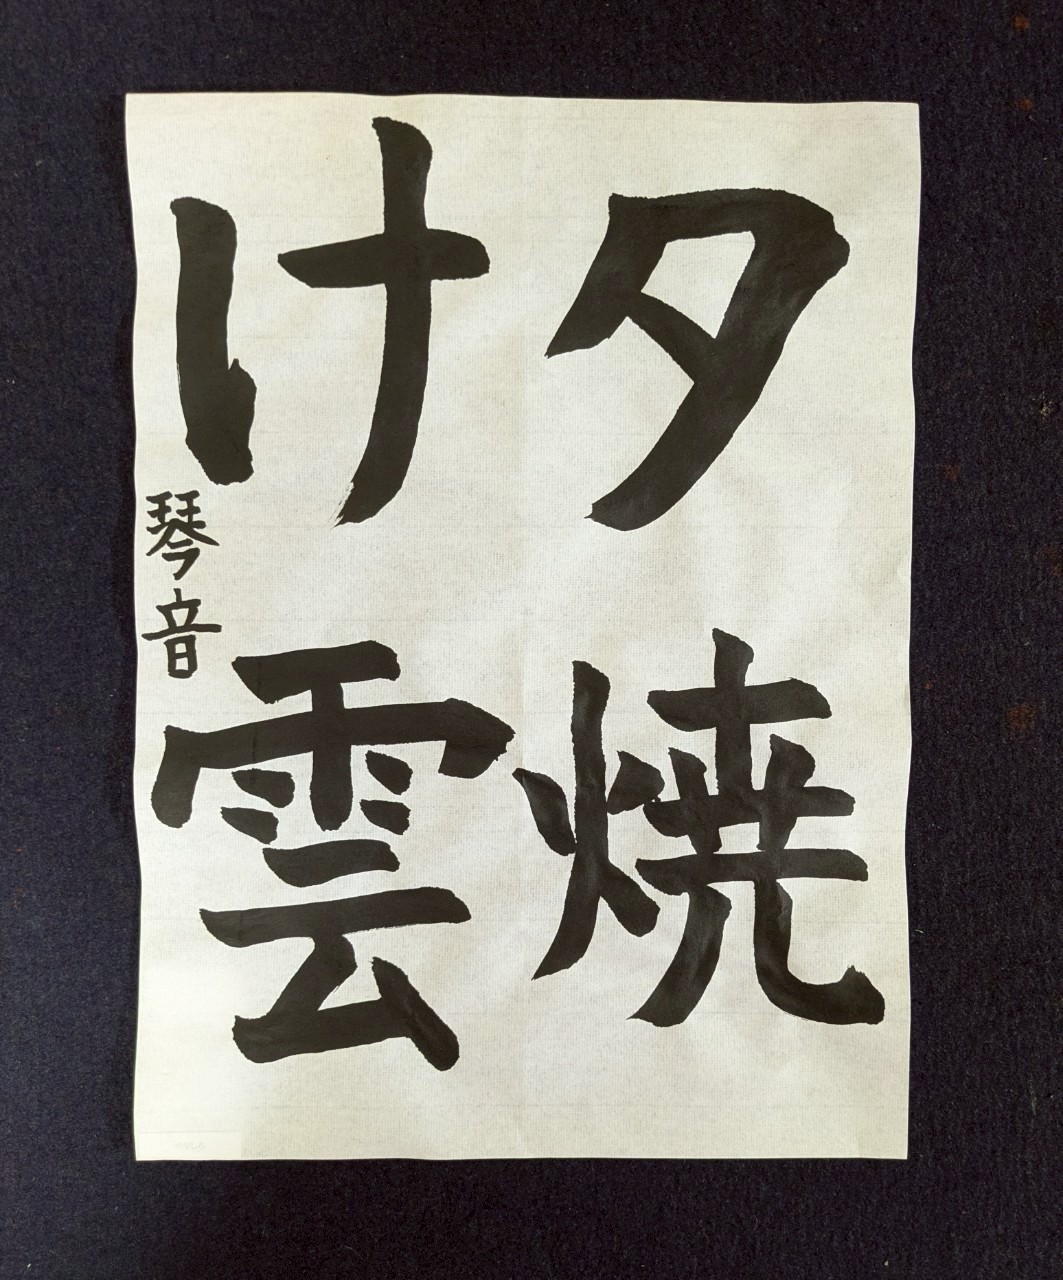 夕焼
け雲
琴音